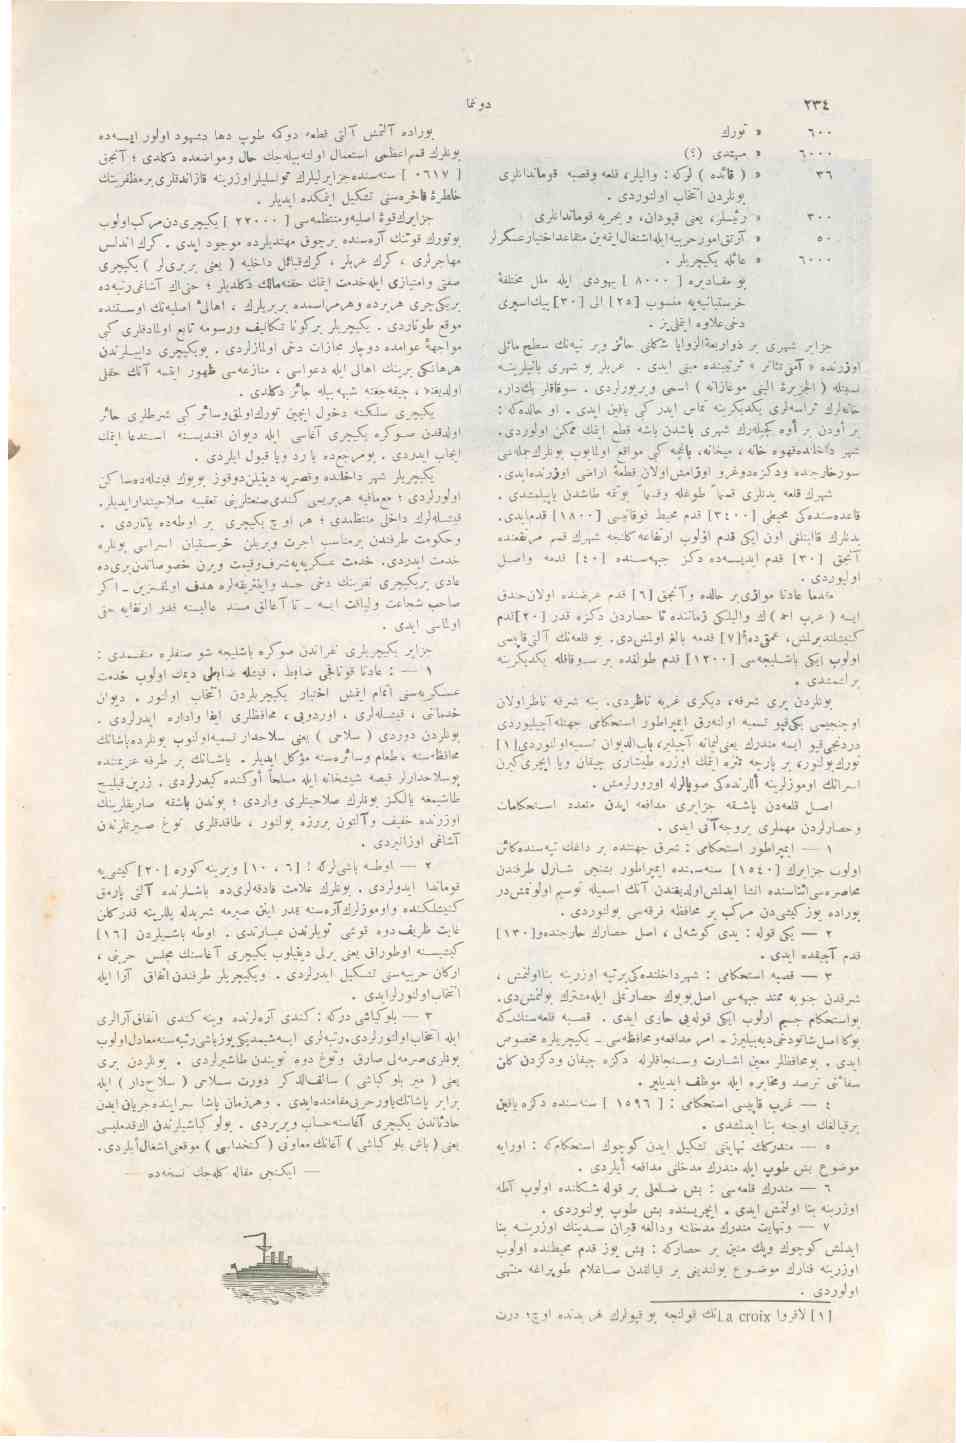 ٢٣٤
دونما
٦٠٠ » تورك
٦٠٠٠ » مهتدى (؟)
٣٦ » ( قائده ) لركه : واليلر، قلعه وقصبه قومانداناری
بونلردن انتخاب اولنوردى .
٣٠٠ » رئيسلر، يعنى قپودان، و بحريه قوماندانلرى
٥٠ » آرتق امور حربيه ايله اشتغال ايتمه ين متقاعد اختيار عسكرلر
٦٠٠٠ » عائله يكيچريلر .
بو مقداريره [ ٨٠٠٠ ] يهودى ايله ملل مختلفهٔ
خرستيانيه يه منسوب [٢٥] الى [٣٠] بيك اسيرى
دخى علاوه ايتملى يز .
جزاير شهرى بر ذواربعة الزوايا شكلنى حائز وبر تپه نك سطح مائلى
اوزرنده « آمفى تئاتر » ترتيبنده مبنى ايدى . عربلر بو شهرى
( الجزيرة البنى موغازانه ) اسمى ويريورلردى . سوقاقلر پك دار،
خانه لرك تراسه لرى يكديكرينه تماس ايدر كبى ياقين ايدى . او حالده كه :
بر أودن بر أوه كچيله رك شهرى باشدن باشه قطع ايتمك ممكن اولوردى.
شهر داخلنده قهوه خانه ، ميخانه، باغچه كبى مواقع اولمايوب بونلرك جمله سى
سور خارجنده ودكزه دوغرو اوزانمش اولان قطعهٔ اراضى اوزرنده ايدى.
شهرك قلعه بدنلرى قسماً طوغله وقسماً يونتمه طاشدن ياپيلمشدى .
قاعده سنده كى محيطى [٣٤٠٠] قدم محيط فوقانيسى [١٨٠٠] قدم ايدى.
بدنلرك قالينلغى اون ايكى قدم اولوب ارتفاعه كلنجه شهرك قسم مرتفعنده
آنجق [٣٠] قدم ايديسه ده دكز جهه سنده [٤٠] قدمه واصل
اوليوردى .
خندق عادتا موازى بر حالده وآنجق [٦] قدم عرضنده اولان خندق
ايسه ( عرب احمد ) ك واليلكى زماننده تا حصاردن دكزه قدر [٢٠] قدم
كنيشلنديرلمش، عمقى ده [٧] قدمه بالغ اولمشدى. بو قلعه نك آلتى قاپيسى
اولوب ايكى باشليجه سى [١٢٠٠] قدم طولنده بر سوقاقله يكديكرينه
برلشمشدى .
بونلردن برى شرقه، ديكرى غربه ناظردى. ينه شرقه ناظر اولان
اوچنجيسى يكى قپو تسميه اولنه رق ايمپراطور استحكامى جهتنه آچيليوردى
دردنجى قپو ايسه مندرك يعنى ليمانه آچيلير، باب الديوان تسميه اولنوردى[١]
اسرانك اوموزلرينه آللرنده كى صوپالرله اورورلرمش .
اصل قلعه دن باشقه جزايرى مدافعه ايدن متعدد استحكامات
وحصارلردن مهملرى بروجه آتى ايدى .
١ — ايمپراطور استحكامى : شرق جهتنده بر داغك تپه سنده كائن
اولوب جزايرك [١٥٤٠] سنه سنده ايمپراطور بشنجى شارل طرفندن
محاصره سى اثناسنده انشا ايدلمش اولديغندن آنك اسميله توسيم اولونمشدر
بوراده يوز كيشى دن مركب بر محافظه فرقه سى بولنوردى .
٢ — يكى قوله : يدى كوشه لى ، اصل حصارك خارجنده و[١٣٠]
قدم آچيقده ايدى .
٣ — قصبه استحكامى : شهر داخلنده كى بر تپه اوزرينه بنا اولنمش ،
شرقدن جنوبه ممتد جهه سى اصل بويوك حصار تملى ايله مشترك بولنمشدى.
بو استحكام جسيم اولوب ايكى قوله يى حاوى ايدى . قصبه قلعه سنك كه
بوكا اصل شاتو دخى ديه بيليرز ـ امر مدافعه ومحافظه سى ـ يكيچريلره مخصوص
ايدى . بو محافظلر معين اشارت وسنجاقلرله دكزه چيقان ودكزدن كلن
سفائنى ترصد ومخابره ايله موظف ايديلر .
٤ — غرب قاپيسى استحكامى : [ ١٥٩٦ ] سنه سنده دكزه ياقين
برقيالغك اوجنه بنا ايدلمشدى .
٥ — مندركك نهايتنى تشكيل ايدن كوچوك استحكام كه : اورايه
موضوع بش طوپ ايله مندرك مدخلنى مدافعه ايلردى .
٦ — مندرك قلعه سى : بش ضلعلى بر قوله شكلنده اولوب آطه
اوزرينه بنا اولنمش ايدى . ايچريسنده بش طوپ بولنوردى .
٧ — ونهايت مندرك مدخلنه ودالغه قيران سدينك اوزرينه بنا
ايدلمش كوچوك وپك متين بر حصاركه : بش يوز قدم محيطنده اولوب
اوزرينه فنارك موضوع بولنديغى بر قيالقدن صاغلام طوپراغه منتهى
اولوردى .
[١] لاقروا La croix نك قولنجه بو قپولرك هر بدنده اوچ، درت
بوراده آلتمش آلتى قطعه دوكمه طوپ دها مشهود اولور ايسه ده
بونلرك قسم اعظمى استعمال اولنه بيله جك حال وموا‌ضعده دكلدى ؛ آنجق
[ ٠٦١٧ ] سنه سنده جزايرليلرك تونسليلر اوزرينه قازاندقلرى برمظفريتك
خاطرهٔ فاخره سنى تشكيل ايتمكده ايديلر .
جزايرك قوهٔ اصليه ومنتظمه سى [ ٢٢٠٠٠ ] يكيچرى دن مركب اولوب
بو تورك قوتنك آره سنده برچوق مهتديلرده موجود ايدى . كرك اندلس
مهاجرلرى ، كرك عربلر ، كرك قبائل داخليه ( يعنى بربرىلر ) يكيچرى
صفتى وامتيازى ايله خدمت ايتمك حقنه مالك دكلديلر ؛ حتى اك آشاغى رتبه ده
بريكيچرى هريرده وهر مراسمده بربريلرك ، اهالئ اصليه نك اوستنده
موقع طوتاردى . يكيچريلر بركونا تكاليف ورسومه تابع اولمادقلرى كبى
مواجههٔ عوامده دوچار مجازات دخى اولمازلردى . بويكيچرى داييلرندن
هرهانكى برينك اهالى ايله دعواسى ، منازعه سى ظهور ايتسه آنك حقلى
اولديغنه ، چيفه جغنه شبهه بيله جائز دكلدى .
يكيچرى سلكنه دخول ايچين تورك اولمق وسائر كبى شرطلرى حائز
اولدقدن صوكره يكيچرى آغاسى ايله ديوان افنديسنه استدعا ايتمك
ايجاب ايدردى . بومرجع ده يا رد ويا قبول ايلردى .
يكيچريلر شهر داخلنده وقصريه ديقيلن دوقوز بويوك قيشله ده ساكن
اولورلردى ؛ مع مافيه هربريسى كندى صنعتلرينى تعقيبه صلاحيتدار ايديلر.
قيشله لرك داخلى منتظمدى ؛ هر اوچ يكيچرى بر اوطه ده ياتاردى .
وحكومت طرفندن برمناسب اجرت ويريلن خرستيان اسراسى بونلره
خدمت ايدردى. خدمت عسكريه يه شرف وقيمت ويرن خصوصاتدن برى ده
عادى بريكيچرى نفرينك دخى حسد وانتريقه لره هدف اولمقسزين ـ اكر
صاحب شجاعت ولياقت ايسه ـ تا آغالق مسند عاليسنه قدر ارتقايه حق
اولماسى ايدى .
جزاير يكيچريلرى نفراتدن صوكره باشليجه شو صنفلره منقسمدى :
١ — : عادتا قوناقجى ضابط ، قيشله ضابطى ديمك اولوب خدمت
عسكريه سنى اتمام ايتمش اختيار يكيچريلردن انتخاب اولنور . ديوان
خدماتى ، قيشله لرى ، اوردويى ، محافظلرى ايفا واداره ايدرلردى .
بونلردن دوردى ( سلاحى ) يعنى سلاحدار تسميه اولنوب بونلرده پاشانك
محافظه سنه ، طعام وسائره سنه مؤكل ايديلر . پاشانك بر طرفه عزيمتنده
بو سلاحدارلر قبضه شيشخانه ايله مسلحاً أوكنده كيدرلردى . زرين قيليچ
طاشيمغه يالكز بونلرك صلاحيتلرى واردى ؛ بوندن باشقه صاريقلرينك
اوزرنده خفيف وآلتون بروزه بولنور ، طاقدقلرى توغ صيرتلرندن
آشاغى اوزانيردى .
٢ — اوطه باشى لركه : [٦ ، ١٠] ويرينه كوره [٢٠] كيشى يه
قوماندا ايدرلردى . بونلرك علامت فارقه لرى ده باشلرنده آلتى پارمق
كنيشلكنده واوموزلرك آره سنه قدر اينن صيرمه شريدله بللرينه قدر كلن
غايت ظريف دوه قوشى تويلرندن عبارتدى . اوطه باشيلردن [١٦]
كيشيسنه اوطوراق يعنى يرلى ديقيلوب يكيچرى آغاسنك مجلس حربنى ،
اركان حربيه سنى تشكيل ايدرلردى . ويكيچريلر طرفندن اتفاق آرا ايله
انتخاب اولنورلر ايدى .
٣ — بلوكباشى دركه : كندى آره لرنده وينه كندى اتفاق آرالرى
ايله انتخاب اولنورلردى. رتبه لرى ايسه شيمديكى يوزباشى رتبه سنه معادل اولوب
بونلرى صرمه لى صارق وتوغ دوه تويندن طاشيرلردى . بونلردن برى
يعنى ( مير بلوكباشى ) سالف الذكر دورت سلاحى ( سلاحدار ) ايله
برابر پاشانك ياور حربى مقامنده ايدى . وهر زمان پاشا سراينده جريان ايدن
حادثاتدن يكيچرى آغاسنه حساب ويريردى . بولوكباشيلردن اك قدمليسى
يعنى ( باش بلوكباشى ) آغانك معاونى ( كتخداسى ) موقعنى اشغال ايلردى.
— ايكنجى مقاله كله جك نسخه ده —